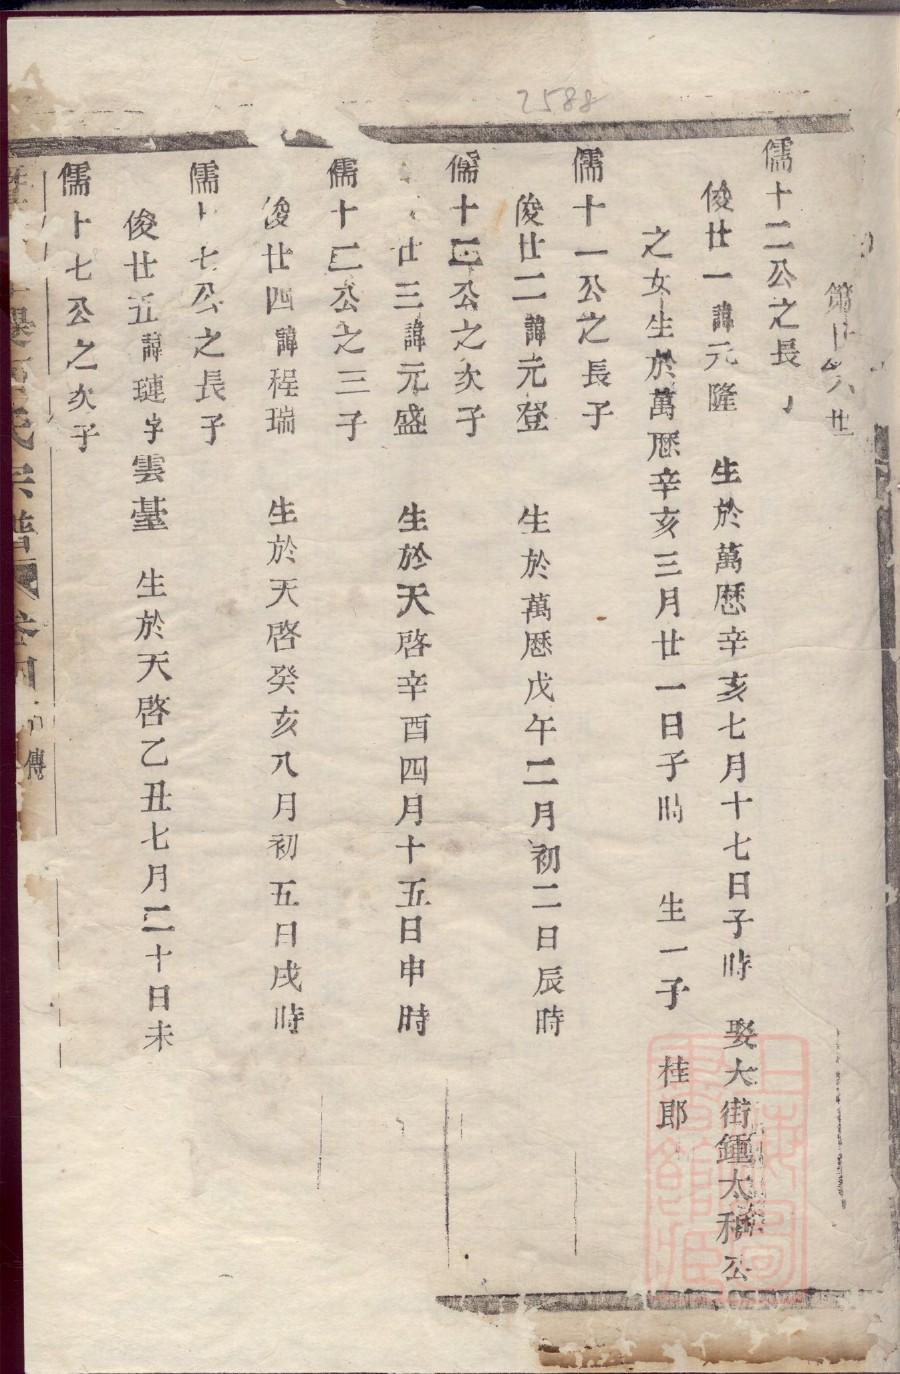 2588
第廿六世
儒十二公之長子
俊廿一諱元隆 生於萬曆辛亥七月十七日子時 娶大街鍾太和公
之女生於萬曆辛亥三月廿一日子時 生一子 桂郎
儒十一公之長子
俊廿二諱元登 生於萬曆戊午二月初二日辰時
儒十二公之次子
廿三諱元盛 生於天啓辛酉四月十五日申時
儒十二公之三子
俊廿四諱程瑞 生於天啓癸亥八月初五日戌時
儒十七公之長子
俊廿五諱璉字雲臺 生於天啓乙丑七月二十日未
儒十七公之次子
氏宗譜 卷四 傳